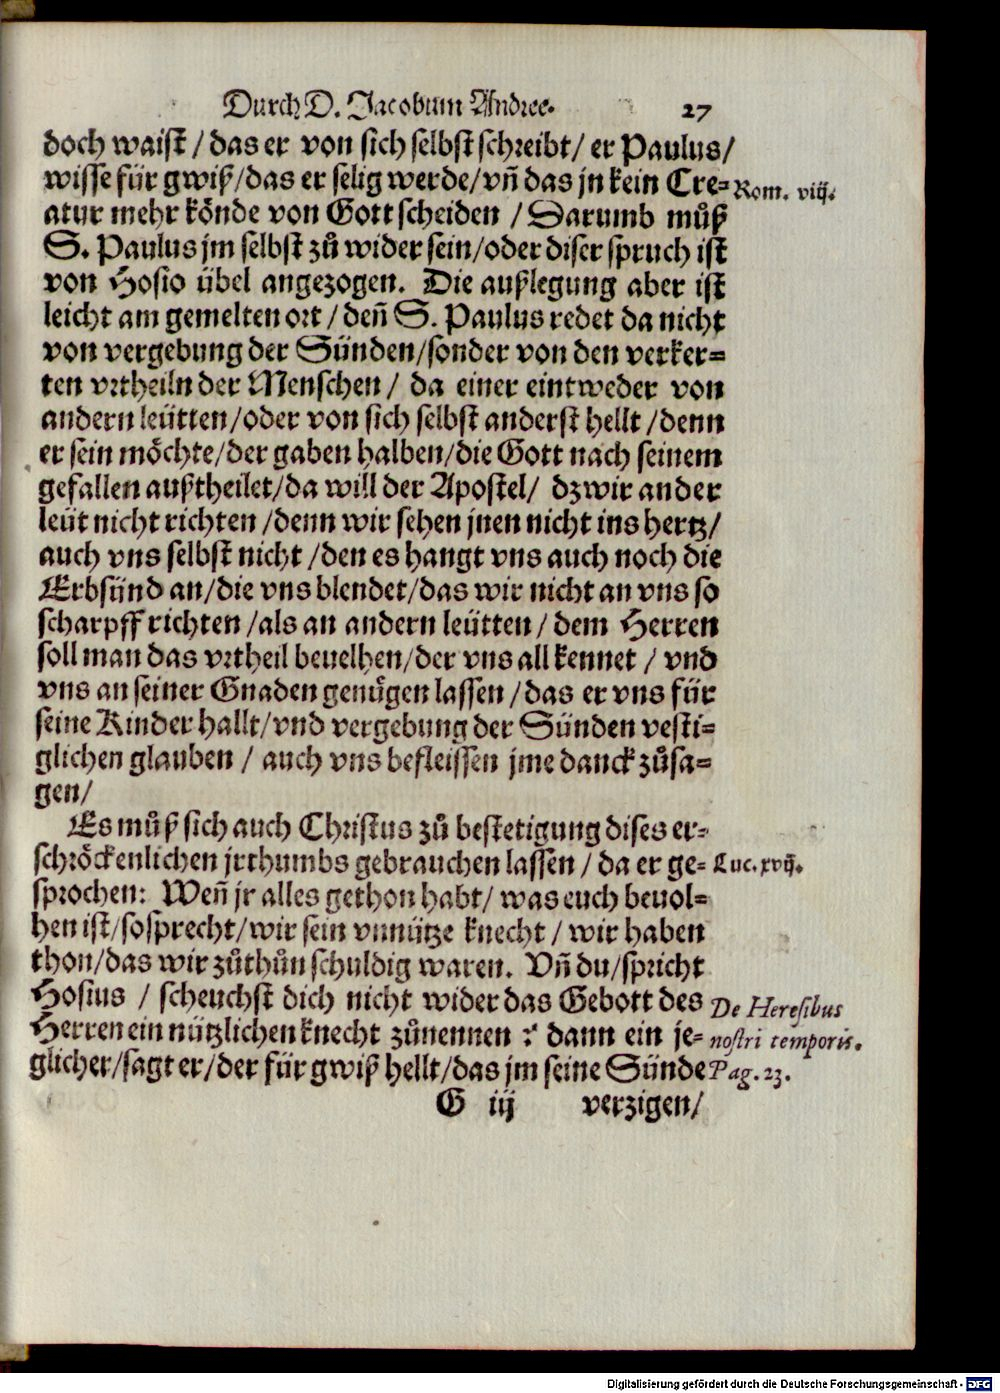 Durch D. Jacobum Andree. 27
doch waist / das er von sich selbst schreibt / er Paulus /
wisse für gwiß / das er selig werde / vñ das jn kein Cre= Rom. viij.
atur mehr könde von Gott scheiden / Darumb můß
S. Paulus jm selbst zů wider sein / oder diser spruch ist
von Hosio übel angezogen. Die außlegung aber ist
leicht am gemelten ort / deñ S. Paulus redet da nicht
von vergebung der Sünden / sonder von den verker=
ten vrtheiln der Menschen / da einer eintweder von
andern leütten / oder von sich selbst anderst hellt / denn
er sein möchte / der gaben halben / die Gott nach seinem
gefallen außtheilet / da will der Apostel / dz wir ander
leüt nicht richten / denn wir sehen jnen nicht ins hertz /
auch vns selbst nicht / den es hangt vns auch noch die
Erbsünd an / die vns blendet / das wir nicht an vns so
scharpff richten / als an andern leütten / dem Herren
soll man das vrtheil beuelhen / der vns all kennet / vnd
vns an seiner Gnaden genügen lassen / das er vns für
seine Kinder hallt / vnd vergebung der Sünden vesti=
glichen glauben / auch vns befleissen jme danck zůsa=
gen /
Es můß sich auch Christus zů bestetigung dises er=
schröckenlichen jrthumbs gebrauchen lassen / da er ge= Luc. xvij.
sprochen: Weñ jr alles gethon habt / was euch beuol=
hen ist / so sprecht / wir sein vnnütze knecht / wir haben
thon / das wir zůthůn schuldig waren. Vñ du / spricht
Hosius / scheuchst dich nicht wider das Gebott des De Heresibus
Herren ein nützlichen knecht zůnennen ? dann ein je= nostri temporis.
glicher / sagt er / der für gwiß hellt / das jm seine Sünde Pag. 23.
G iij verzigen /
Digitalisierung gefördert durch die Deutsche Forschungsgemeinschaft - DFG